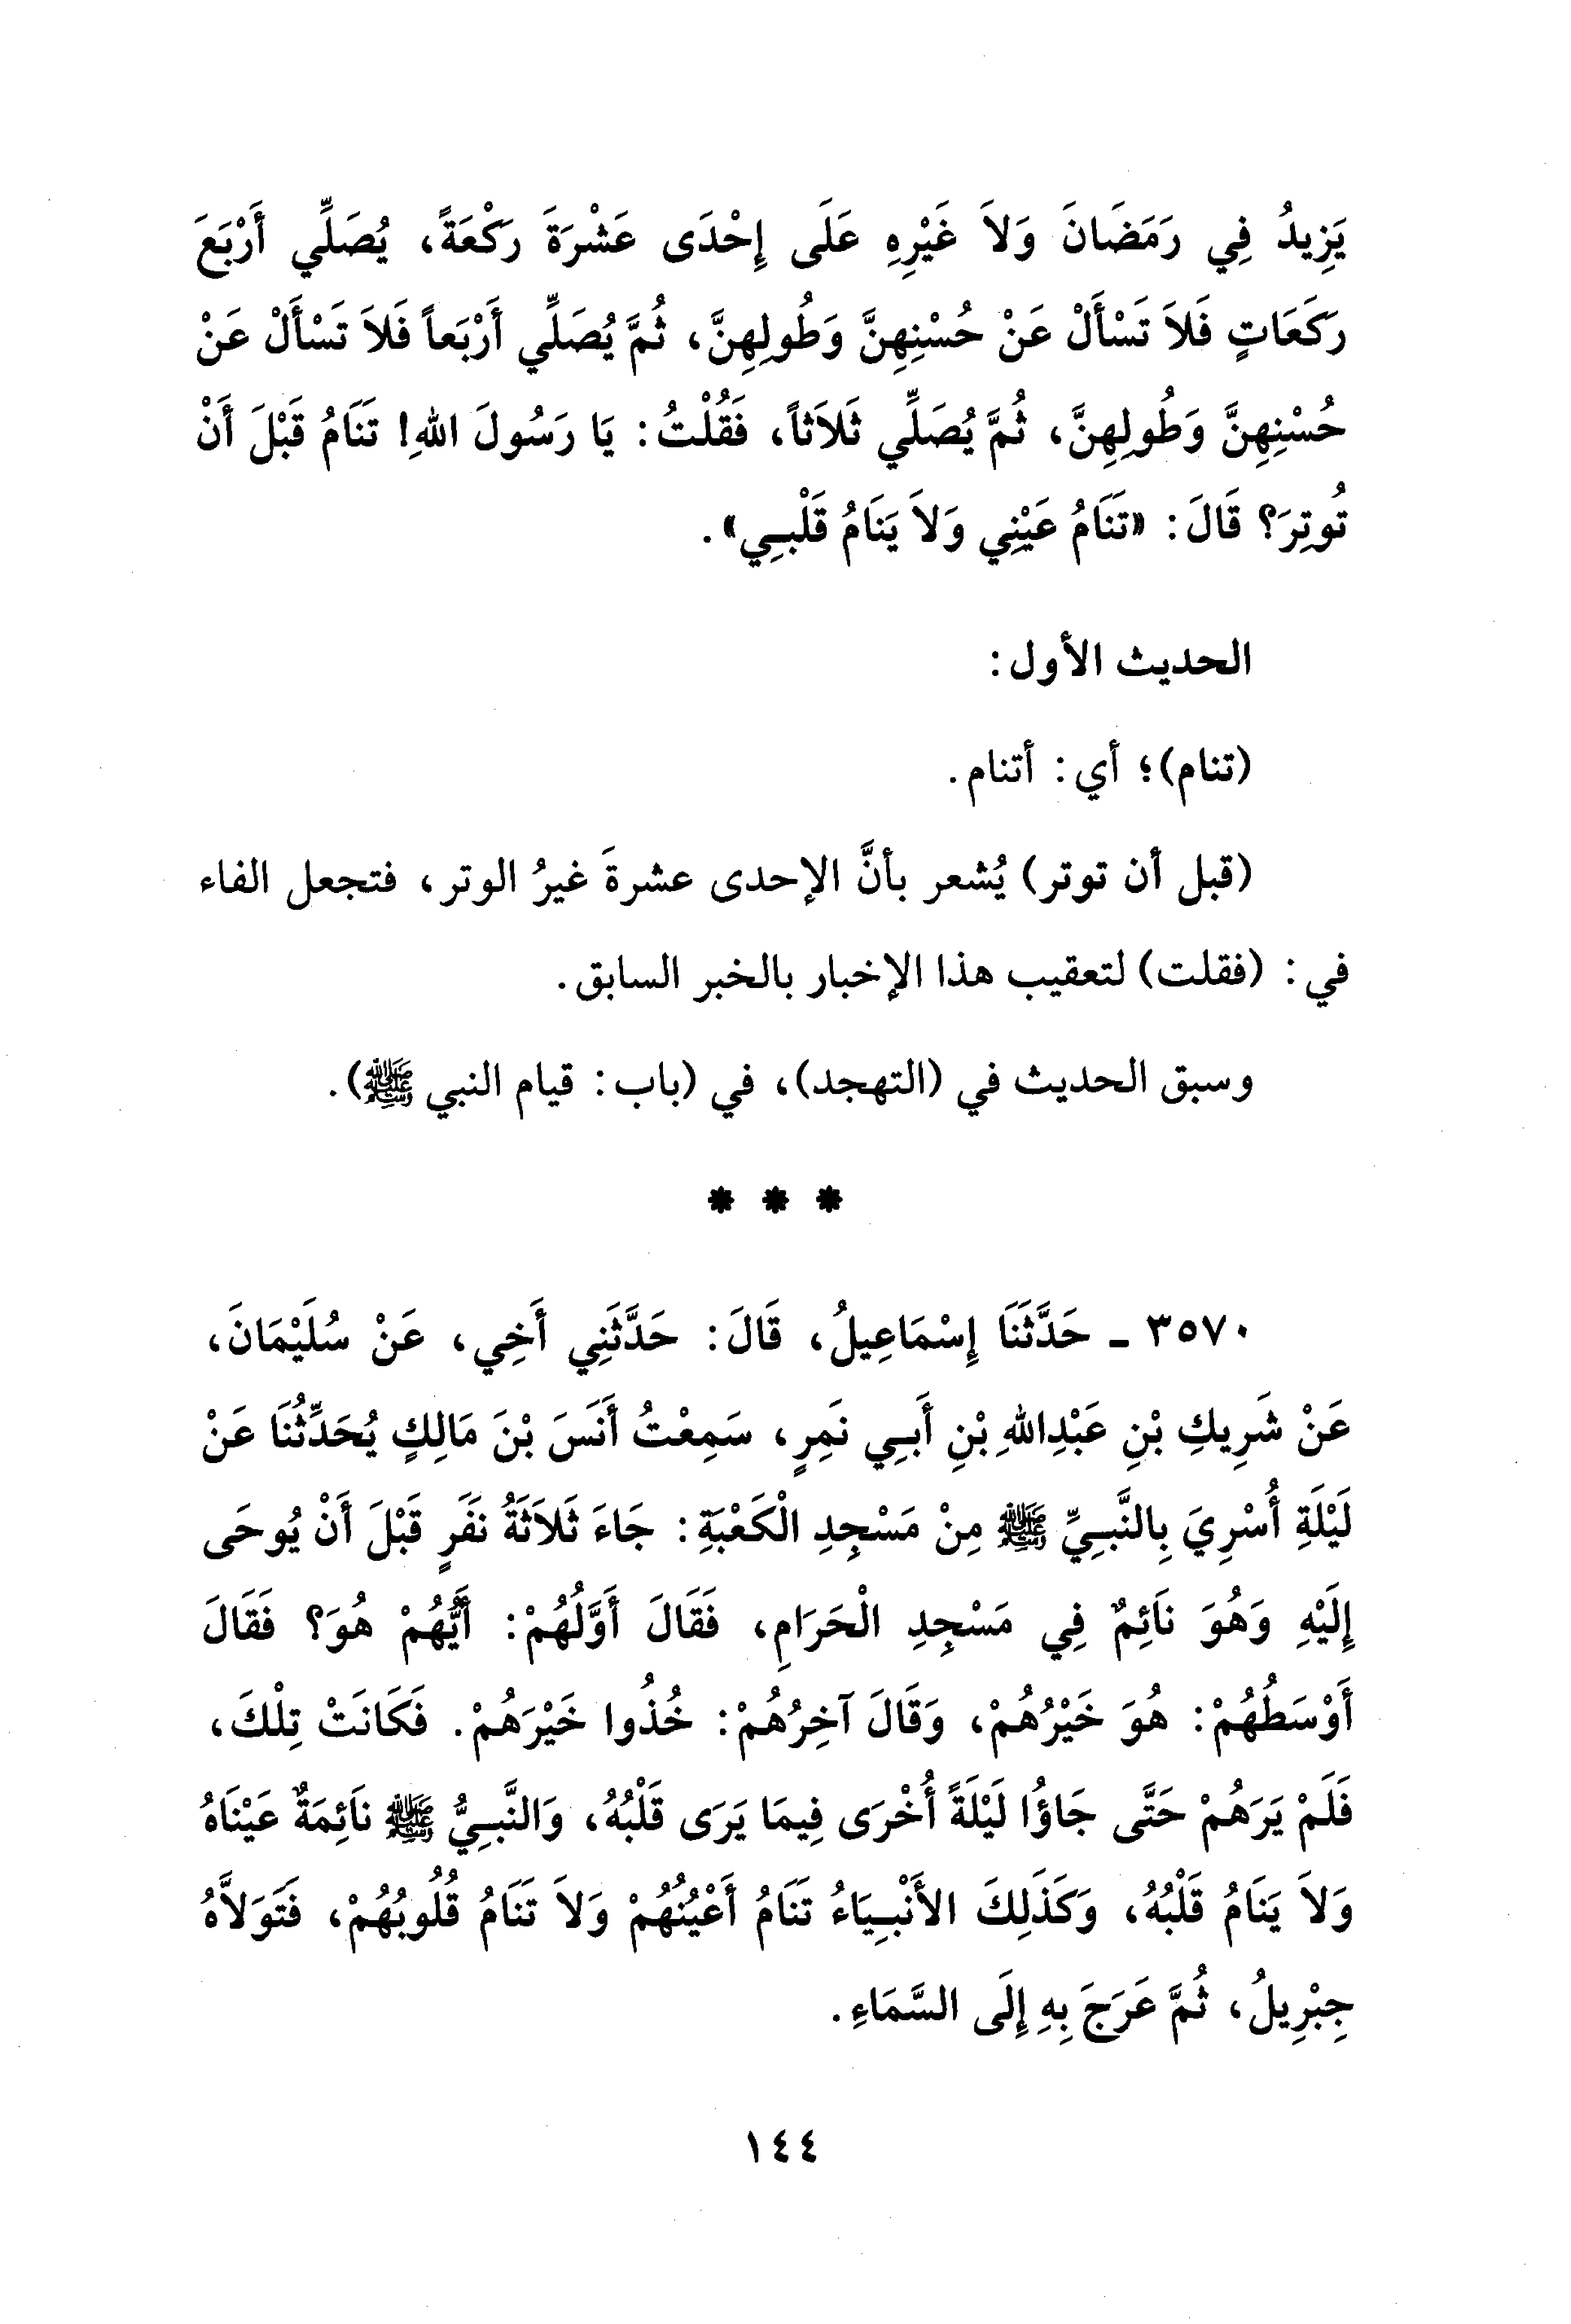 يَزِيدُ فِي رَمَضَانَ وَلاَ غَيْرِهِ عَلَى إِحْدَى عَشْرَةَ رَكْعَةً، يُصَلِّي أَرْبَعَ
رَكَعَاتٍ فَلاَ تَسْأَلْ عَنْ حُسْنِهِنَّ وَطُولِهِنَّ، ثُمَّ يُصَلِّي أَرْبَعاً فَلاَ تَسْأَلْ عَنْ
حُسْنِهِنَّ وَطُولِهِنَّ، ثُمَّ يُصَلِّي ثَلاَثاً، فَقُلْتُ: يَا رَسُولَ اللهِ! تَنَامُ قَبْلَ أَنْ
تُوتِرَ؟ قَالَ: «تَنَامُ عَيْنِي وَلاَ يَنَامُ قَلْبِي».
الحديث الأول:
(تنام)؛ أي: أتنام.
(قبل أن توتر) يُشعر بأنَّ الإحدى عشرةَ غيرُ الوتر، فتجعل الفاء
في: (فقلت) لتعقيب هذا الإخبار بالخبر السابق.
وسبق الحديث في (التهجد)، في (باب: قيام النبي ﷺ).
* * *
٣٥٧٠ ـ حَدَّثَنَا إِسْمَاعِيلُ، قَالَ: حَدَّثَنِي أَخِي، عَنْ سُلَيْمَانَ،
عَنْ شَرِيكِ بْنِ عَبْدِاللهِ بْنِ أَبِي نَمِرٍ، سَمِعْتُ أَنَسَ بْنَ مَالِكٍ يُحَدِّثُنَا عَنْ
لَيْلَةِ أُسْرِيَ بِالنَّبِيِّ ﷺ مِنْ مَسْجِدِ الْكَعْبَةِ: جَاءَ ثَلاَثَةُ نَفَرٍ قَبْلَ أَنْ يُوحَى
إِلَيْهِ وَهُوَ نَائِمٌ فِي مَسْجِدِ الْحَرَامِ، فَقَالَ أَوَّلُهُمْ: أَيُّهُمْ هُوَ؟ فَقَالَ
أَوْسَطُهُمْ: هُوَ خَيْرُهُمْ، وَقَالَ آخِرُهُمْ: خُذُوا خَيْرَهُمْ. فَكَانَتْ تِلْكَ،
فَلَمْ يَرَهُمْ حَتَّى جَاؤُا لَيْلَةً أُخْرَى فِيمَا يَرَى قَلْبُهُ، وَالنَّبِيُّ ﷺ نَائِمَةٌ عَيْنَاهُ
وَلاَ يَنَامُ قَلْبُهُ، وَكَذَلِكَ الأَنْبِيَاءُ تَنَامُ أَعْيُنُهُمْ وَلاَ تَنَامُ قُلُوبُهُمْ، فَتَوَلاَّهُ
جِبْرِيلُ، ثُمَّ عَرَجَ بِهِ إِلَى السَّمَاءِ.
١٤٤